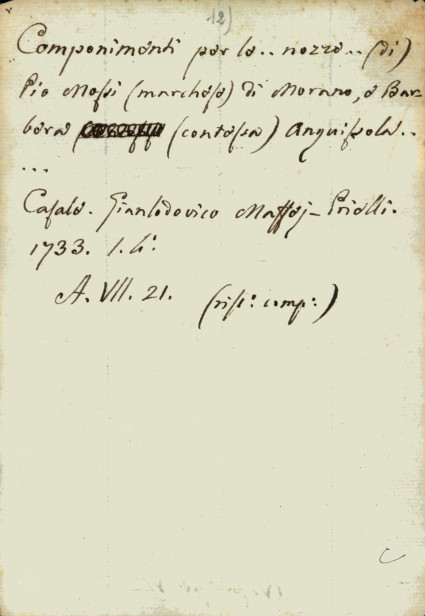 12)
Componimenti per le.. nozze.. (di)
Pio Mossi (marchese) di Morano, e Bar-
bera (contessa) Anguissola..
...
Casale. Gianlodovico Maffej-Prielli.
1733. 1. 4º.
A. VII. 21. (risc: comp:)